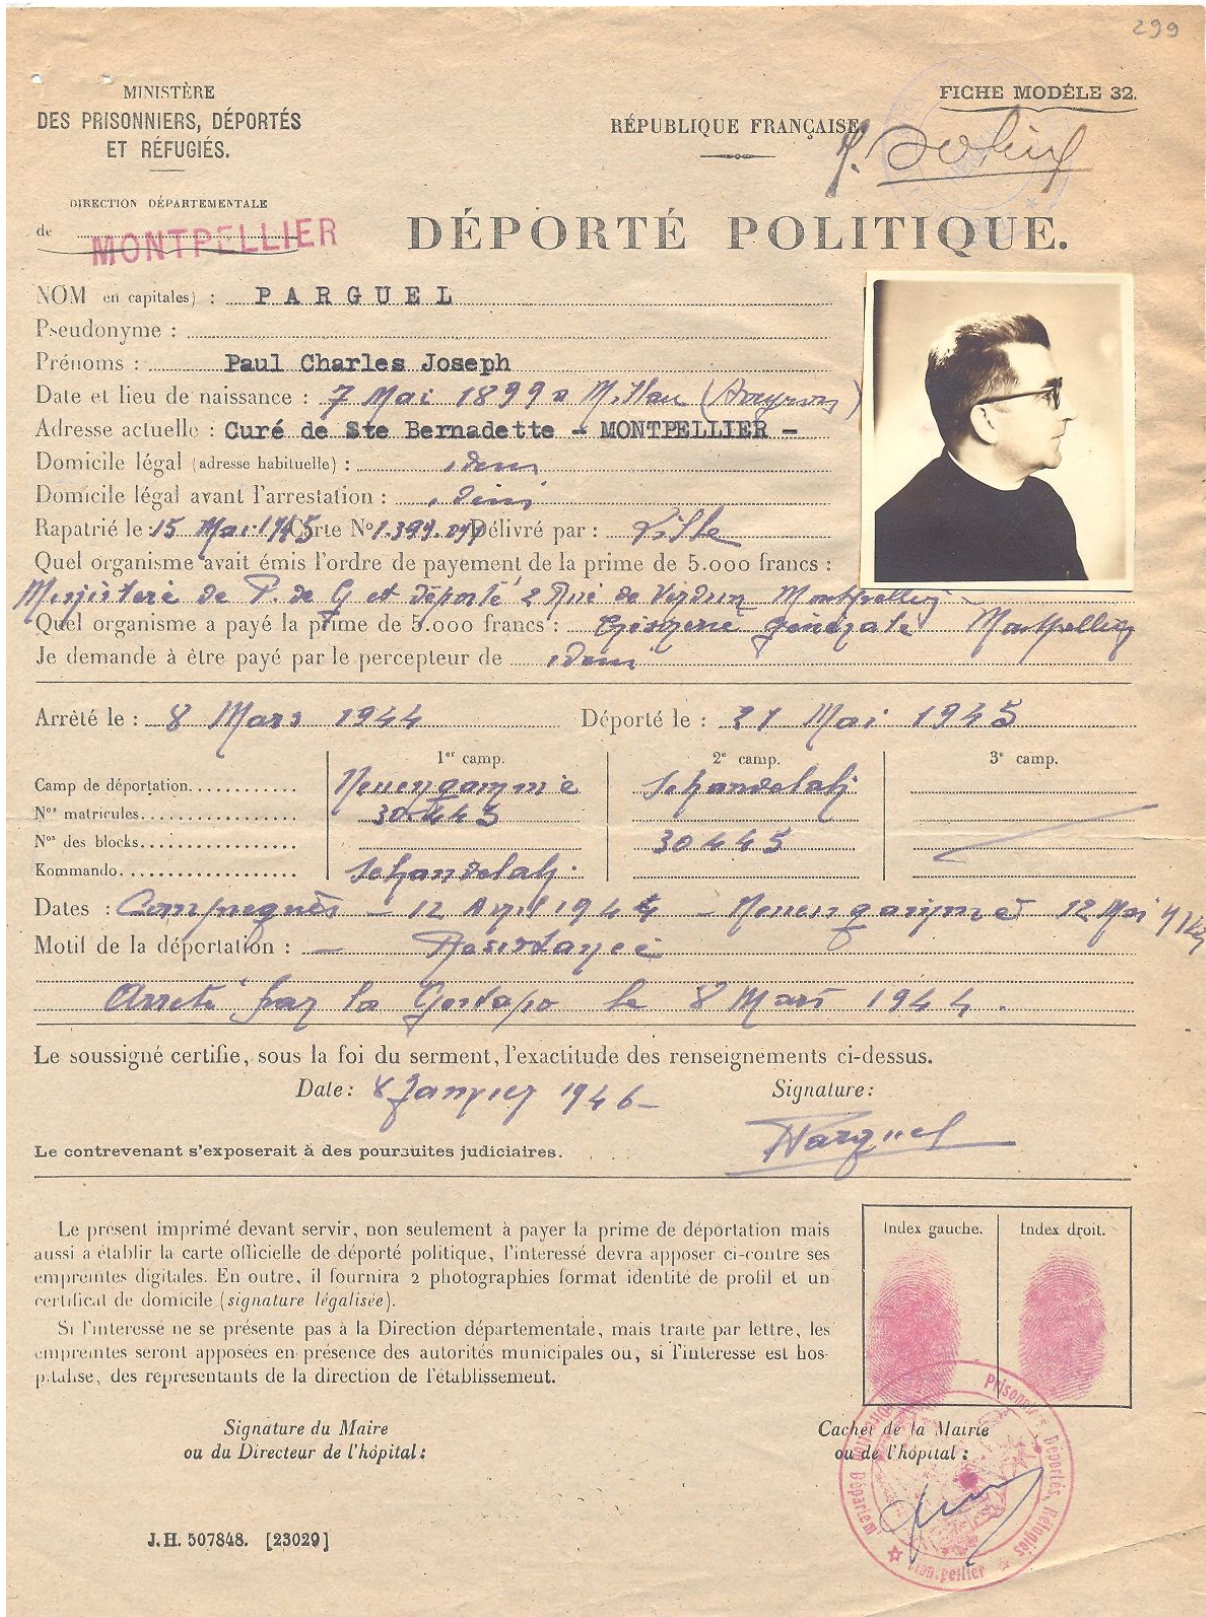 299
MINISTÈRE
DES PRISONNIERS, DÉPORTÉS
ET RÉFUGIÉS.
FICHE MODÈLE 32.
RÉPUBLIQUE FRANÇAISE
DIRECTION DÉPARTEMENTALE
de MONTPELLIER
DÉPORTÉ POLITIQUE.
NOM (en capitales) : PARGUEL
Pseudonyme :
Prénoms : Paul Charles Joseph
Date et lieu de naissance : 7 Mai 1899 a Millau (Aveyron)
Adresse actuelle : Curé de Ste Bernadette - MONTPELLIER -
Domicile légal (adresse habituelle) : idem
Domicile légal avant l'arrestation : idem
Rapatrié le : 15 Mai 1945 Carte N° Délivré par : Lille
Quel organisme avait émis l'ordre de payement de la prime de 5.000 francs :
Ministere de P. de G et déporté 2 Rue de Verdun Montpellier -
Quel organisme a payé la prime de 5.000 francs : Génerale Montpellier
Je demande à être payé par le percepteur de idem
Arrêté le : 8 Mars 1944 Déporté le : 21 Mai 1945
1er camp. 2e camp. 3e camp.
Camp de déportation............ Neuengamme Schandelah
Nos matricules................. 30.445
Nos des blocks................. 30445
Kommando................... Schandelah
Dates : Compiegnès - 12 Avril 1944 - Neuengamme 12 Mai
Motif de la déportation : - Resistance
Arreté par la Gestapo le 8 Mars 1944.
Le soussigné certifie, sous la foi du serment, l'exactitude des renseignements ci-dessus.
Date : 8 Janvier 1946 - Signature :
Parguel
Le contrevenant s'exposerait à des poursuites judiciaires.
Le présent imprimé devant servir, non seulement à payer la prime de déportation mais
aussi a établir la carte officielle de déporté politique, l'interessé devra apposer ci-contre ses
empreintes digitales. En outre, il fournira 2 photographies format identité de profil et un
certificat de domicile (signature légalisée).
Si l'interessé ne se présente pas à la Direction départementale, mais traite par lettre, les
empreintes seront apposées en présence des autorités municipales ou, si l'interesse est hos-
pitalise, des représentants de la direction de l'établissement.
Index gauche. Index droit.
Signature du Maire
ou du Directeur de l'hôpital :
Cachet de la Mairie
ou de l'hôpital :
Prisonniers, Déportés, Réfugiés
Montpellier
J.H. 507848. [23029]